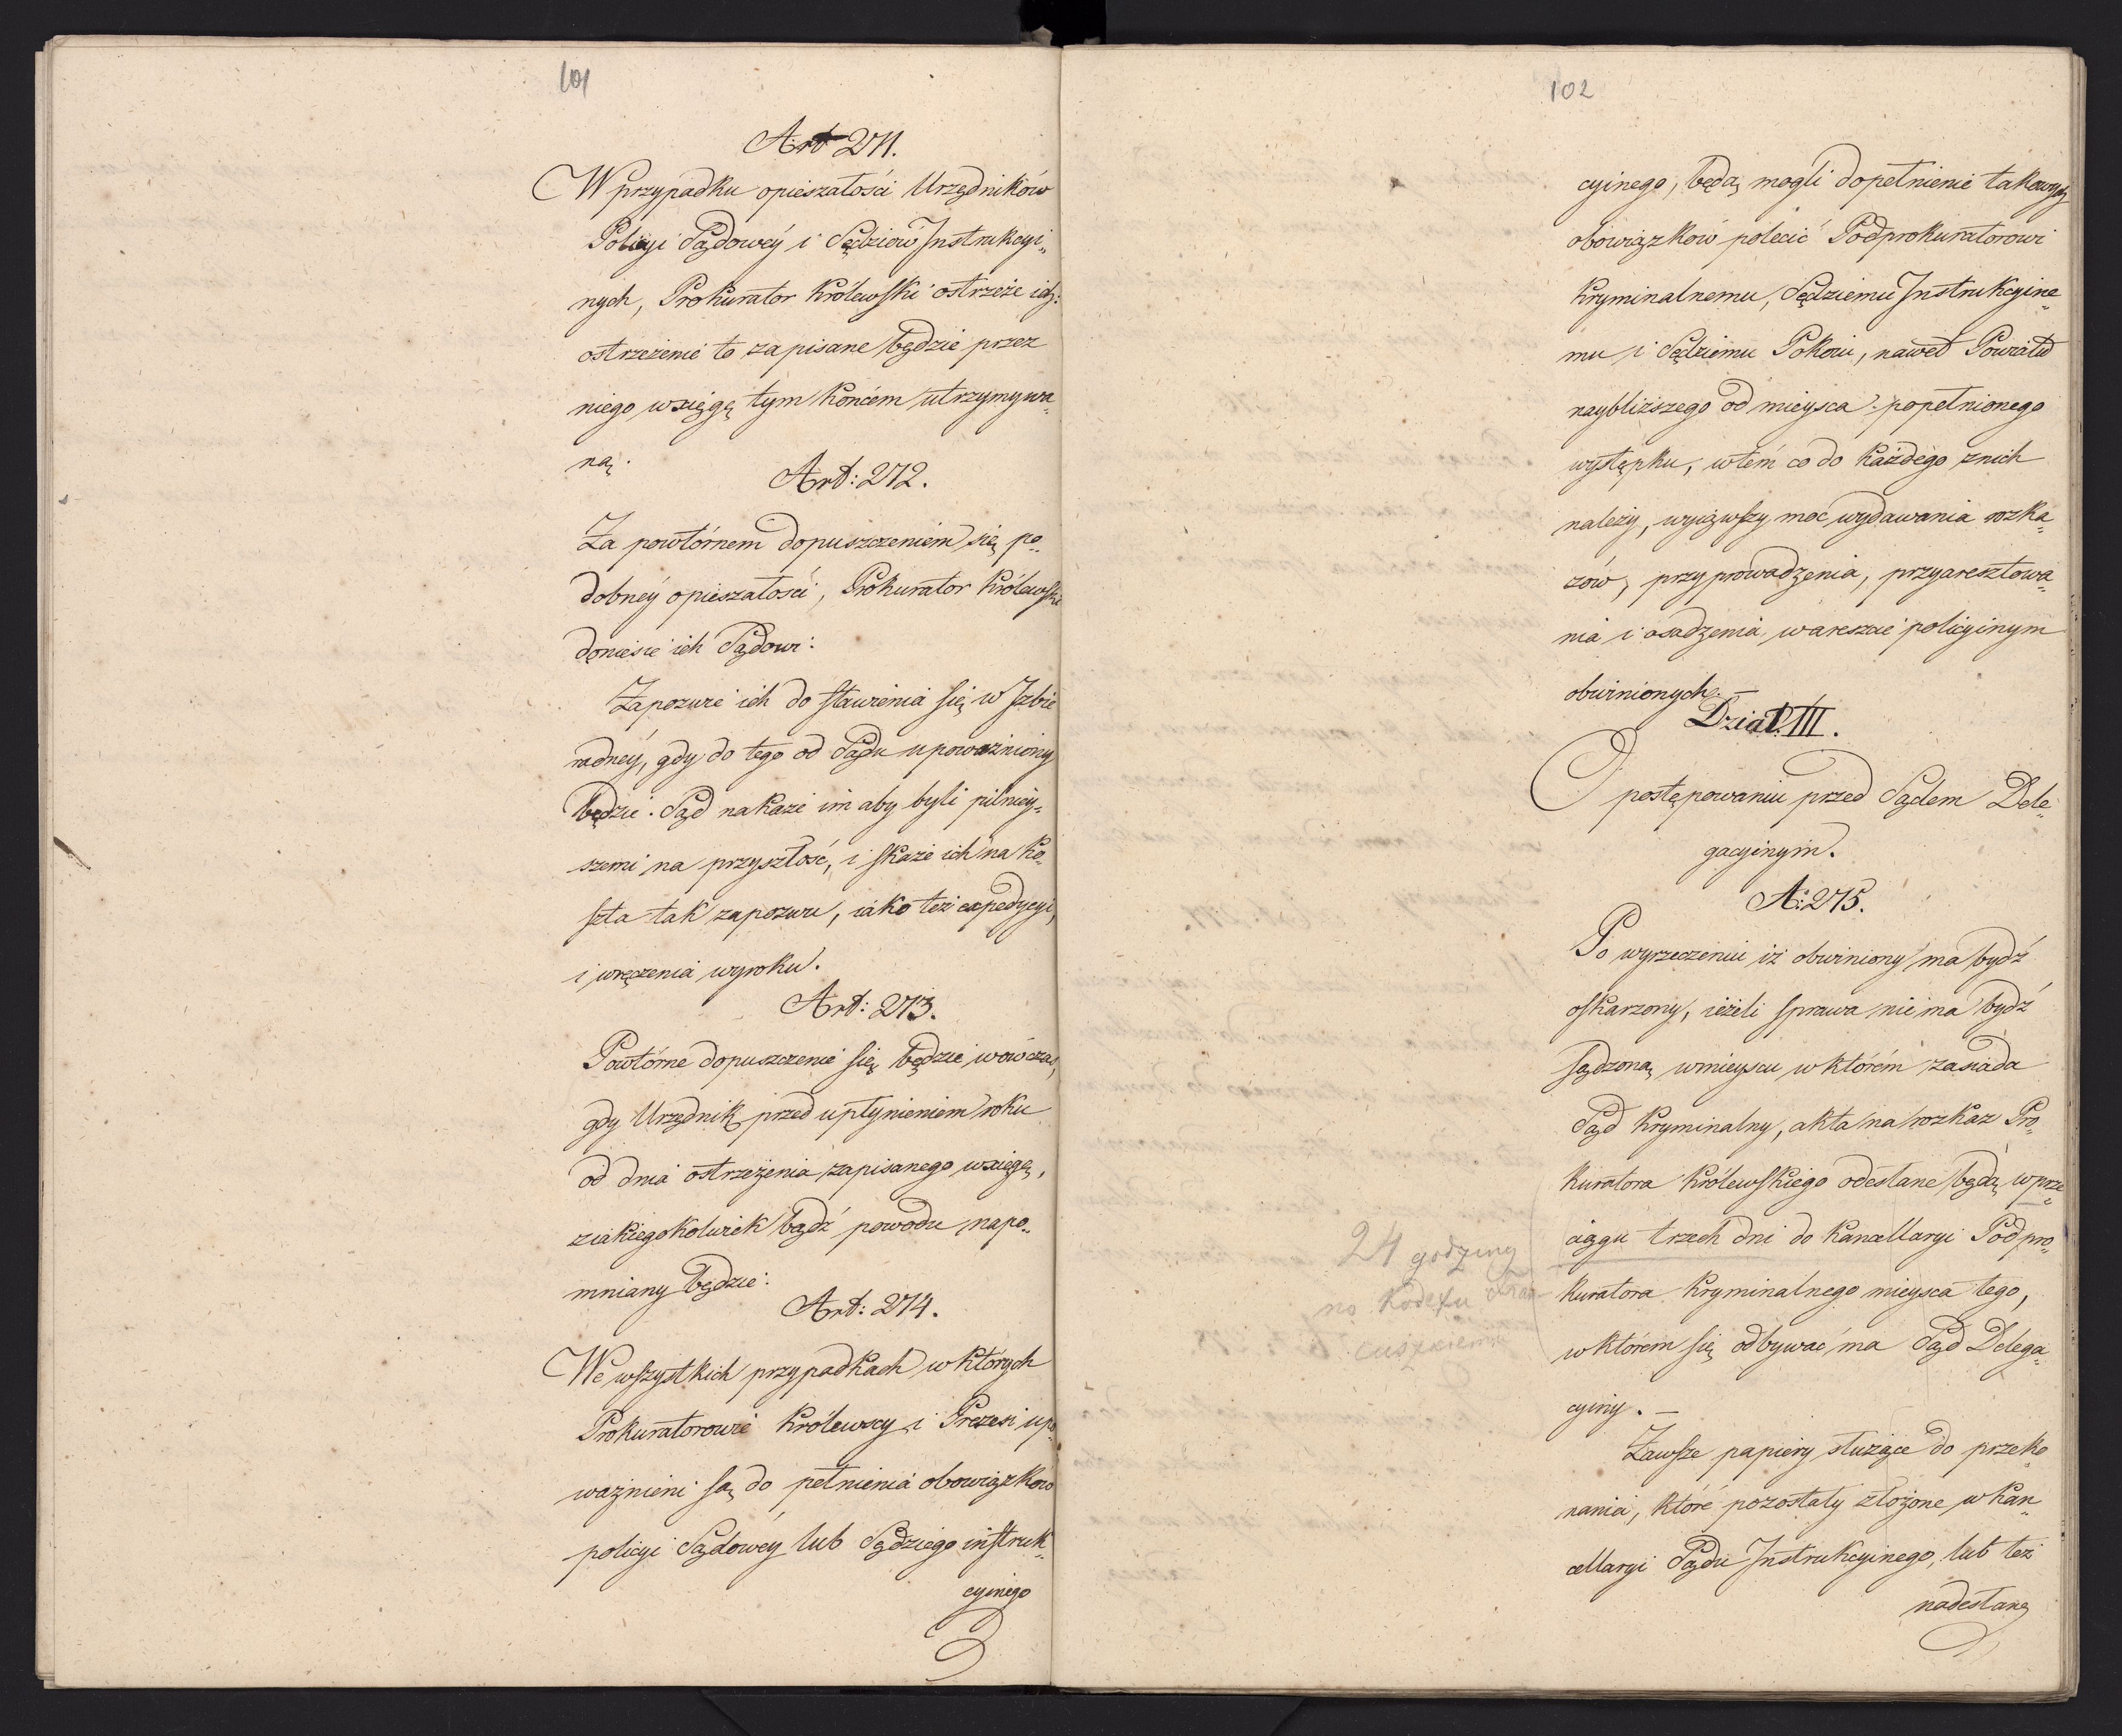 101
Art 271.
W przypadku opieszałości Urzędników
Policyi Sądowéy i Sędziów Instrukcyi„
nych, Prokurator Królewski ostrzeże ich:
ostrzeżenie to zapisane będzie przez
niego wxięgę tym końcem utrzymywa„
ną.
Art: 272.
Za powtórnem dopuszczeniem się po„
dobnéy opieszałości, Prokurator Królewski
doniesie ich Sądowi:
Zapozwie ich do stawienia się w Izbie
radnéy, gdy do tego od Sądu upoważniony
będzie. Sąd nakaże im aby byli pilniey„
szemi na przyszłość, i skaże ich na ko„
szta tak zapozwu, iako też expedycyi,
i wręczenia wyroku.
Art: 273.
Powtórne dopuszczenie się będzie wówczas,
gdy Urzędnik przed upłynieniem roku
od dnia ostrzeżenia zapisanego wxięgę,
ziakiegokolwiek bądź powodu napo„
mniany będzie:
Art: 274.
We wszystkich przypadkach w których
Prokuratorowie Królewscy i Prezesi upo
ważnieni są do pełnienia obowiązków
policyi Sądowéy lub Sędziego instruk„
cyinego
102
cyinego, będą mogli dopełnienie takowych
obowiązków polecić Podprokuratorowi
Kryminalnemu, Sędziemu Instrukcyine„
mu i Sędziemu Pokoiu, nawet Powiatu
naybliższego od mieysca popełnionego
występku, wtém co do każdego znich
należy, wyiąwszy moc wydawania rozka„
zów, przyprowadzenia, przyaresztowa„
nia i osadzenia wareszcie policyinym
obwinionych. —
Dział III.
O postępowaniu przed Sądem Dele„
gacyinym.
A: 275.
Po wyrzeczeniu iż obwiniony ma bydź
oskarzony, ieżeli sprawa nie ma bydź
sądzoną wmieyscu w którém zasiada
Sąd Kryminalny, akta na rozkaz Pro„
kuratora Królewskiego odesłane będą wprze„
ciągu trzech dni do kancellaryi Podpro„
kuratora Kryminalnego mieysca tego,
w którém się odbywać ma Sąd Delega„
cyiny. —
24 godziny
no Kodexu fran
cuzkiemu
Zawsze papiery służące do przeko„
nania, które pozostały złożone w kan„
cellaryi Sądu Instrukcyinego, lub też
nadesłane